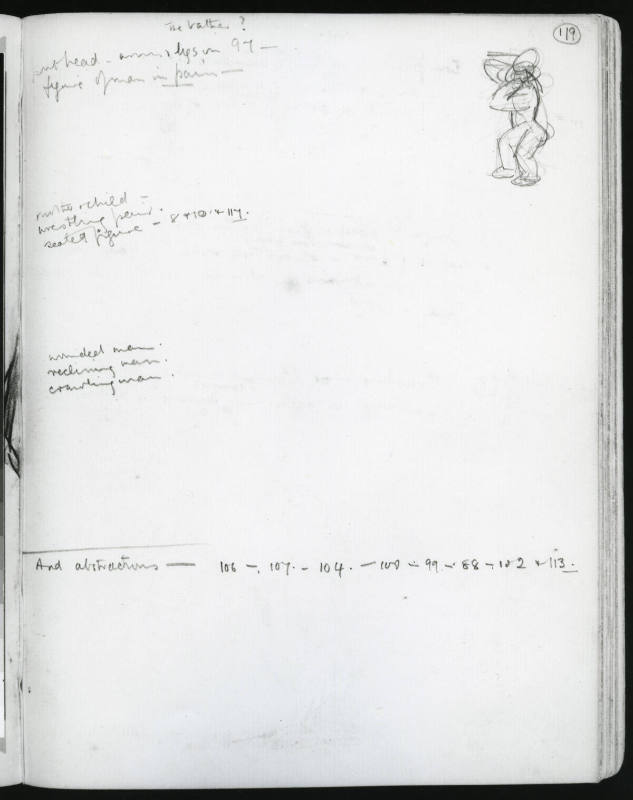 119
The bather?
head - arms & legs on 97 -
figure of man in pain -
mother & child -
wrestling pair.
seated figure - 8 + 101 + 117.
wounded man.
reclining man.
crawling man.
And abstractions - 106 -. 107. - 104. - 100 - 99 - 88 - 102 + 113.